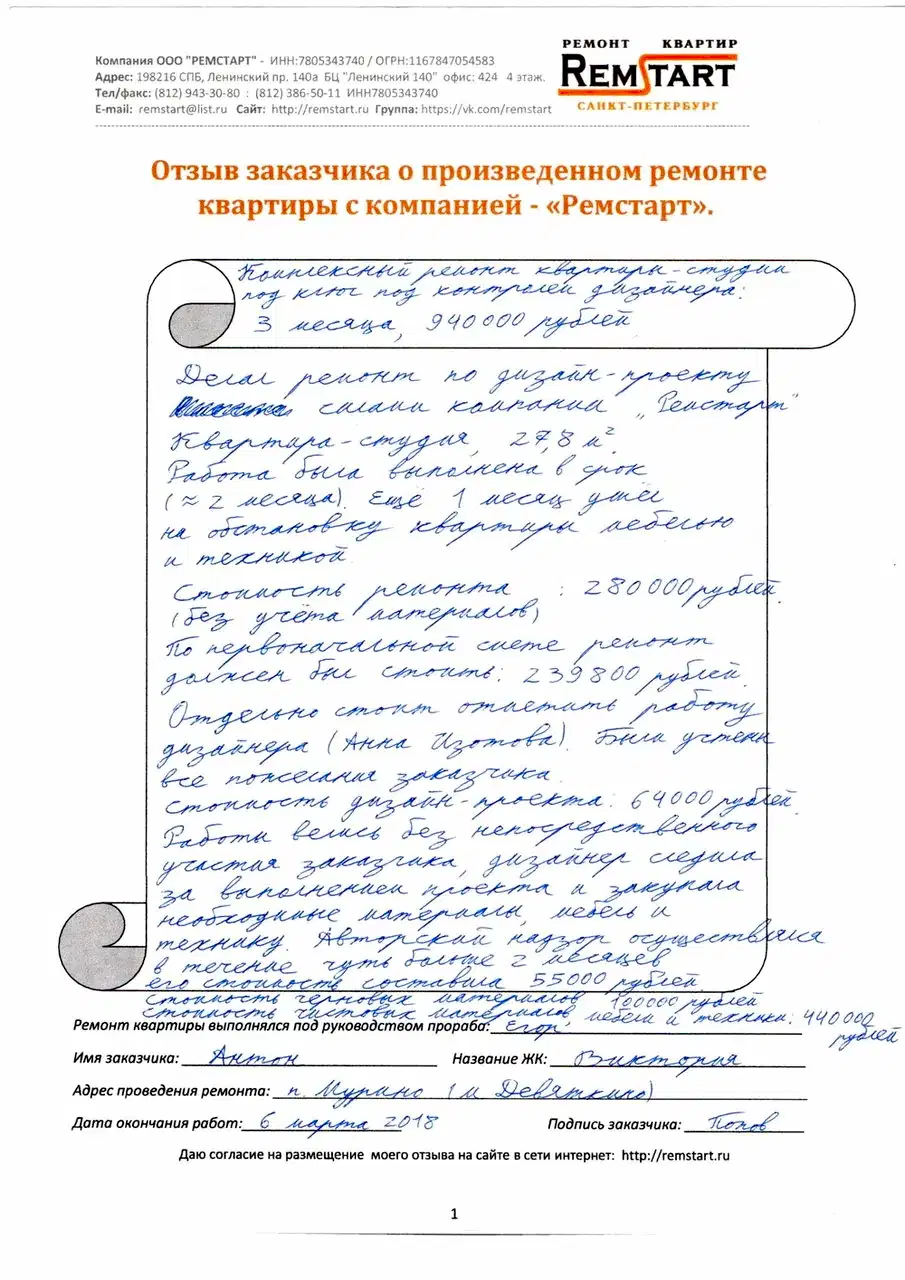 Компания ООО "РЕМСТАРТ" - ИНН:7805343740 / ОГРН:1167847054583
Адрес: 198216 СПБ, Ленинский пр. 140а БЦ "Ленинский 140" офис: 424 4 этаж.
Тел/факс: (812) 943-30-80 : (812) 386-50-11 ИНН7805343740
E-mail: remstart@list.ru Сайт: http://remstart.ru Группа: https://vk.com/remstart
РЕМОНТ КВАРТИР
REMSTART
САНКТ-ПЕТЕРБУРГ
Отзыв заказчика о произведенном ремонте
квартиры с компанией - «Ремстарт».
Комплексный ремонт квартиры-студии
под ключ под контролем дизайнера:
3 месяца, 940000 рублей
Делал ремонт по дизайн-проекту
силами компании „Ремстарт"
Квартира-студия, 27,8 м²
Работа была выполнена в срок
(≈ 2 месяца). Ещё 1 месяц ушёл
на обстановку квартиры мебелью
и техникой.
Стоимость ремонта : 280000 рублей
(без учёта материалов)
По первоначальной смете ремонт
должен был стоить: 239800 рублей.
Отдельно стоит отметить работу
дизайнера (Анна Изотова). Были учтены
все пожелания заказчика.
Стоимость дизайн-проекта: 64000 рублей
Работы велись без непосредственного
участия заказчика, дизайнер следила
за выполнением проекта и закупала
необходимые материалы, мебель и
технику. Авторский надзор осуществлялся
в течение чуть больше 2 месяцев
его стоимость составила 55000 рублей.
стоимость черновых материалов 100000 рублей
стоимость чистовых материалов, мебели и техники: 440000
рублей
Ремонт квартиры выполнялся под руководством прораба: Егор
Имя заказчика: Антон Название ЖК: Виктория
Адрес проведения ремонта: п. Мурино (м Девяткино)
Дата окончания работ: 6 марта 2018 Подпись заказчика: Попов
Даю согласие на размещение моего отзыва на сайте в сети интернет: http://remstart.ru
1